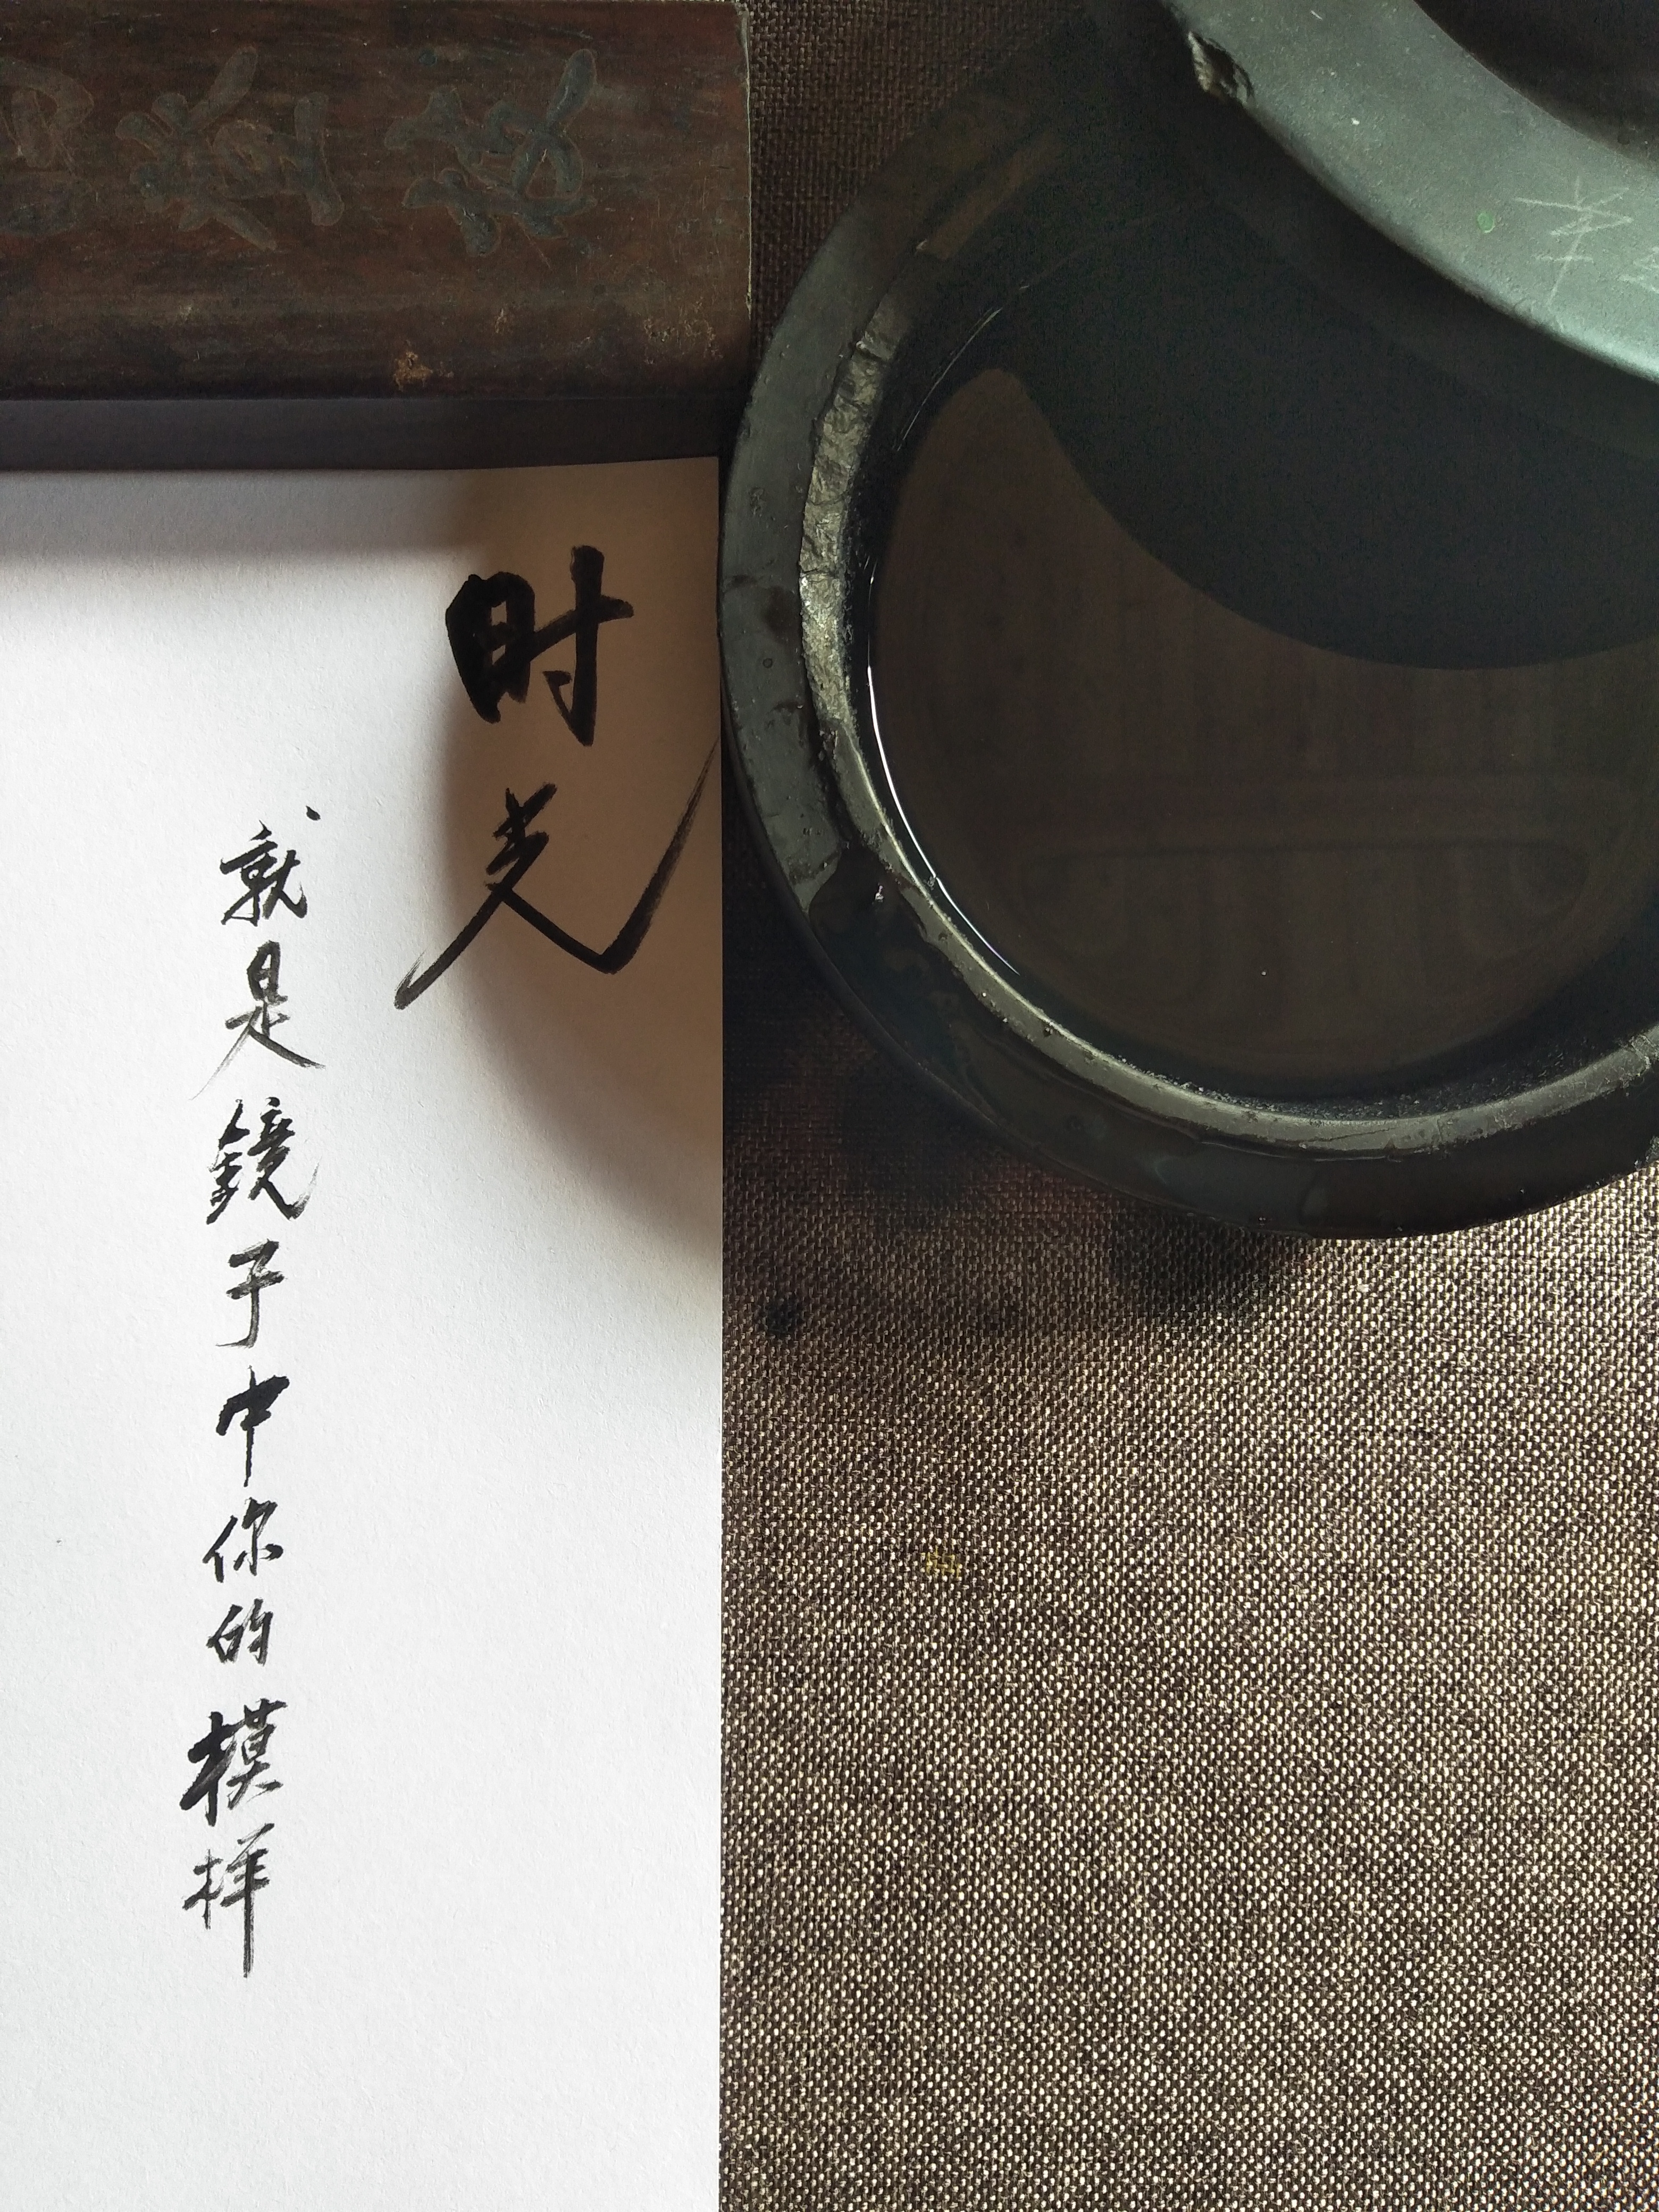 时光
就是鏡子中你的模样